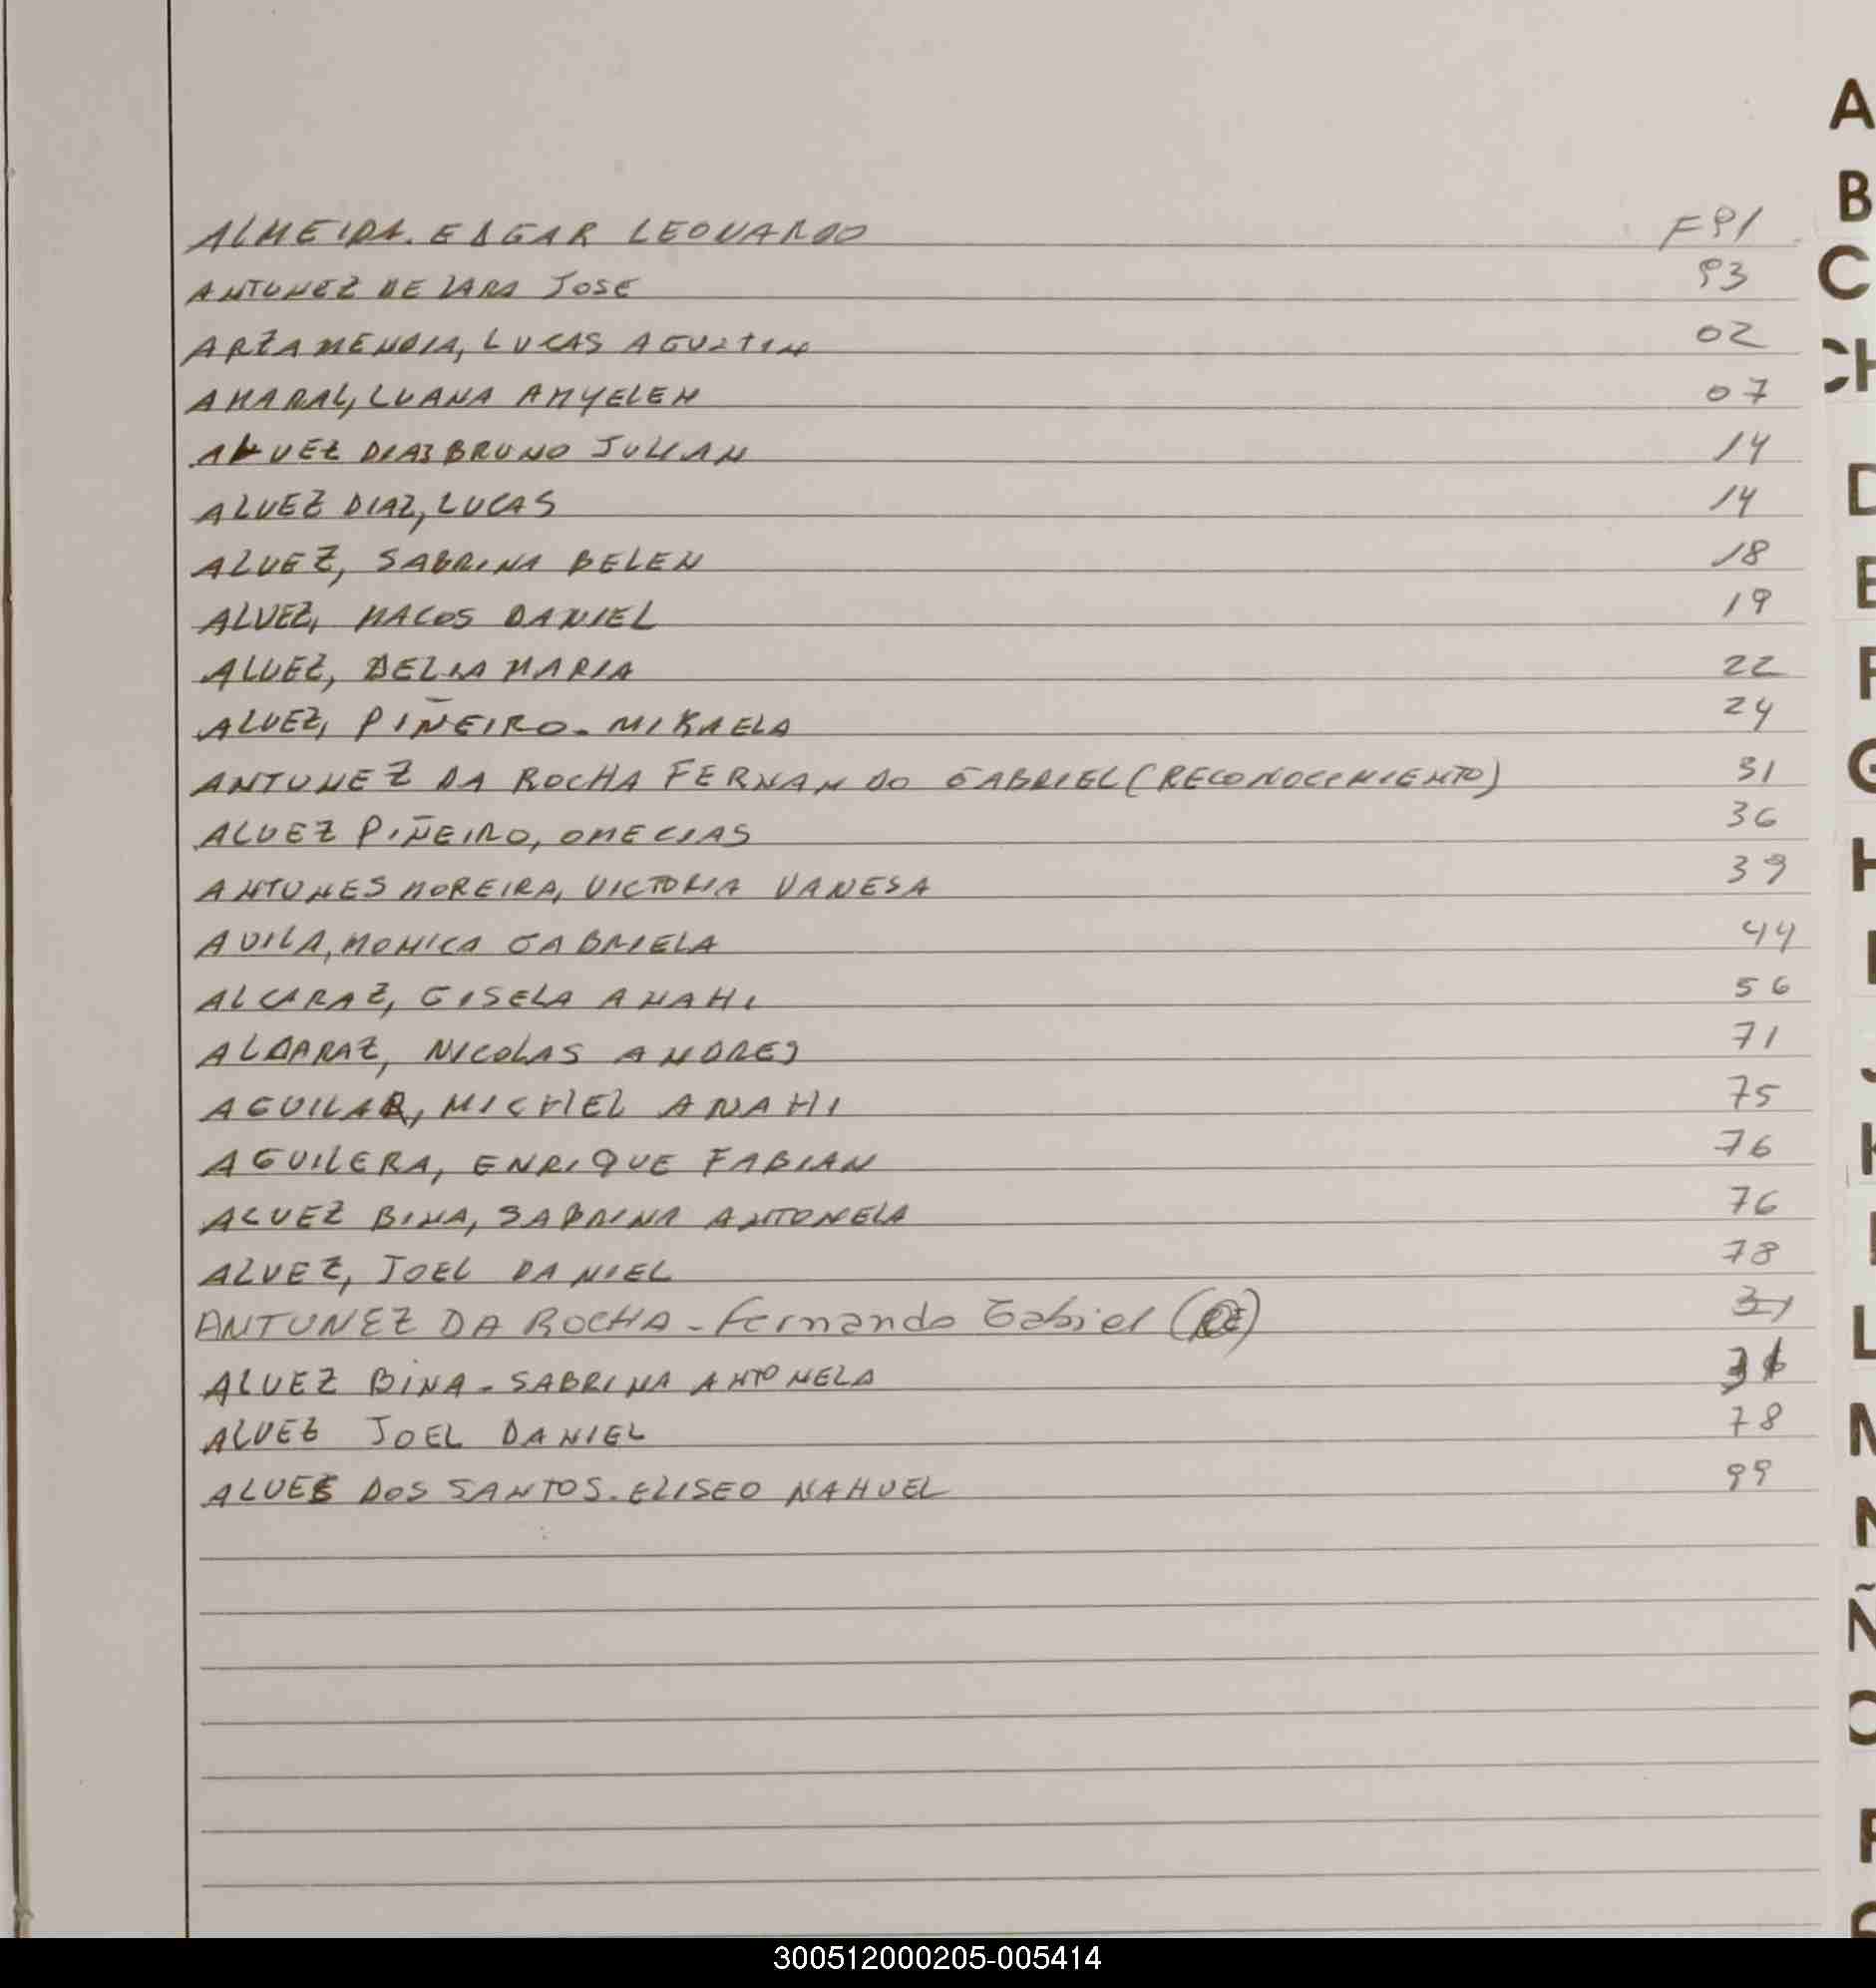 ALMEIDA. EDGAR LEONARDO F 91
ANTUNEZ DE LARA JOSE 93
ARZAMENDIA, LUCAS AGUSTIN 02
AMARAL, LUANA AMYELEN 07
ALVEZ DIAZ BRUNO JULIAN 14
ALVEZ DIAZ, LUCAS 14
ALVEZ, SABRINA BELEN 18
ALVEZ, MACOS DANIEL 19
ALVEZ, DELIA MARIA 22
ALVEZ, PIÑEIRO. MIKAELA 24
ANTUNEZ DA ROCHA FERNANDO GABRIEL (RECONOCIMIENTO) 31
ALVEZ PIÑEIRO, OMECIAS 36
ANTUNES MOREIRA, VICTORIA VANESA 39
AVILA, MONICA GABRIELA 44
ALCARAZ, GISELA ANAHI 56
ALCARAZ, NICOLAS ANDRES 71
AGUILAR, MICHEL ANAHI 75
AGUILERA, ENRIQUE FABIAN 76
ALVEZ BINA, SABRINA ANTONELA 76
ALVEZ, JOEL DANIEL 78
ANTUNEZ DA ROCHA - Fernando Gabriel (RE) 31
ALVEZ BINA - SABRINA ANTONELA
ALVEZ JOEL DANIEL 78
ALVES DOS SANTOS. ELISEO NAHUEL 99
A
B
C
CH
D
E
F
G
H
I
J
K
L
M
N
Ñ
O
P
300512000205-005414